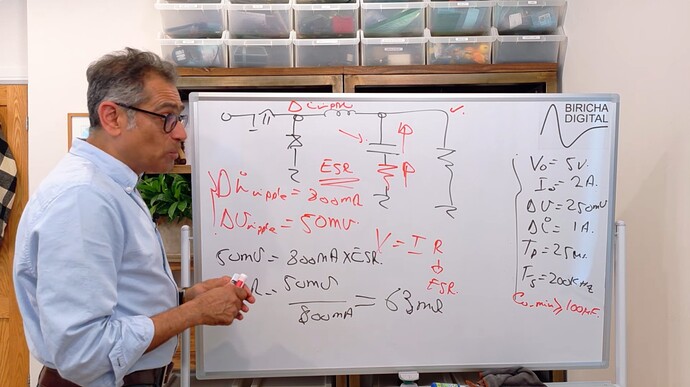 Δ i ripple
BIRICHA
DIGITAL
ESR
Δ i ripple = 800mA
ΔV ripple = 50mV
50mV = 800mA x ESR
V = I R
ESR
50mV
800mA
= 63mΩ
Vo = 5V.
Io = 2A.
ΔV = 250mV
Δi = 1A.
Fs = 200kHz
Co-min ≥ 100µF.